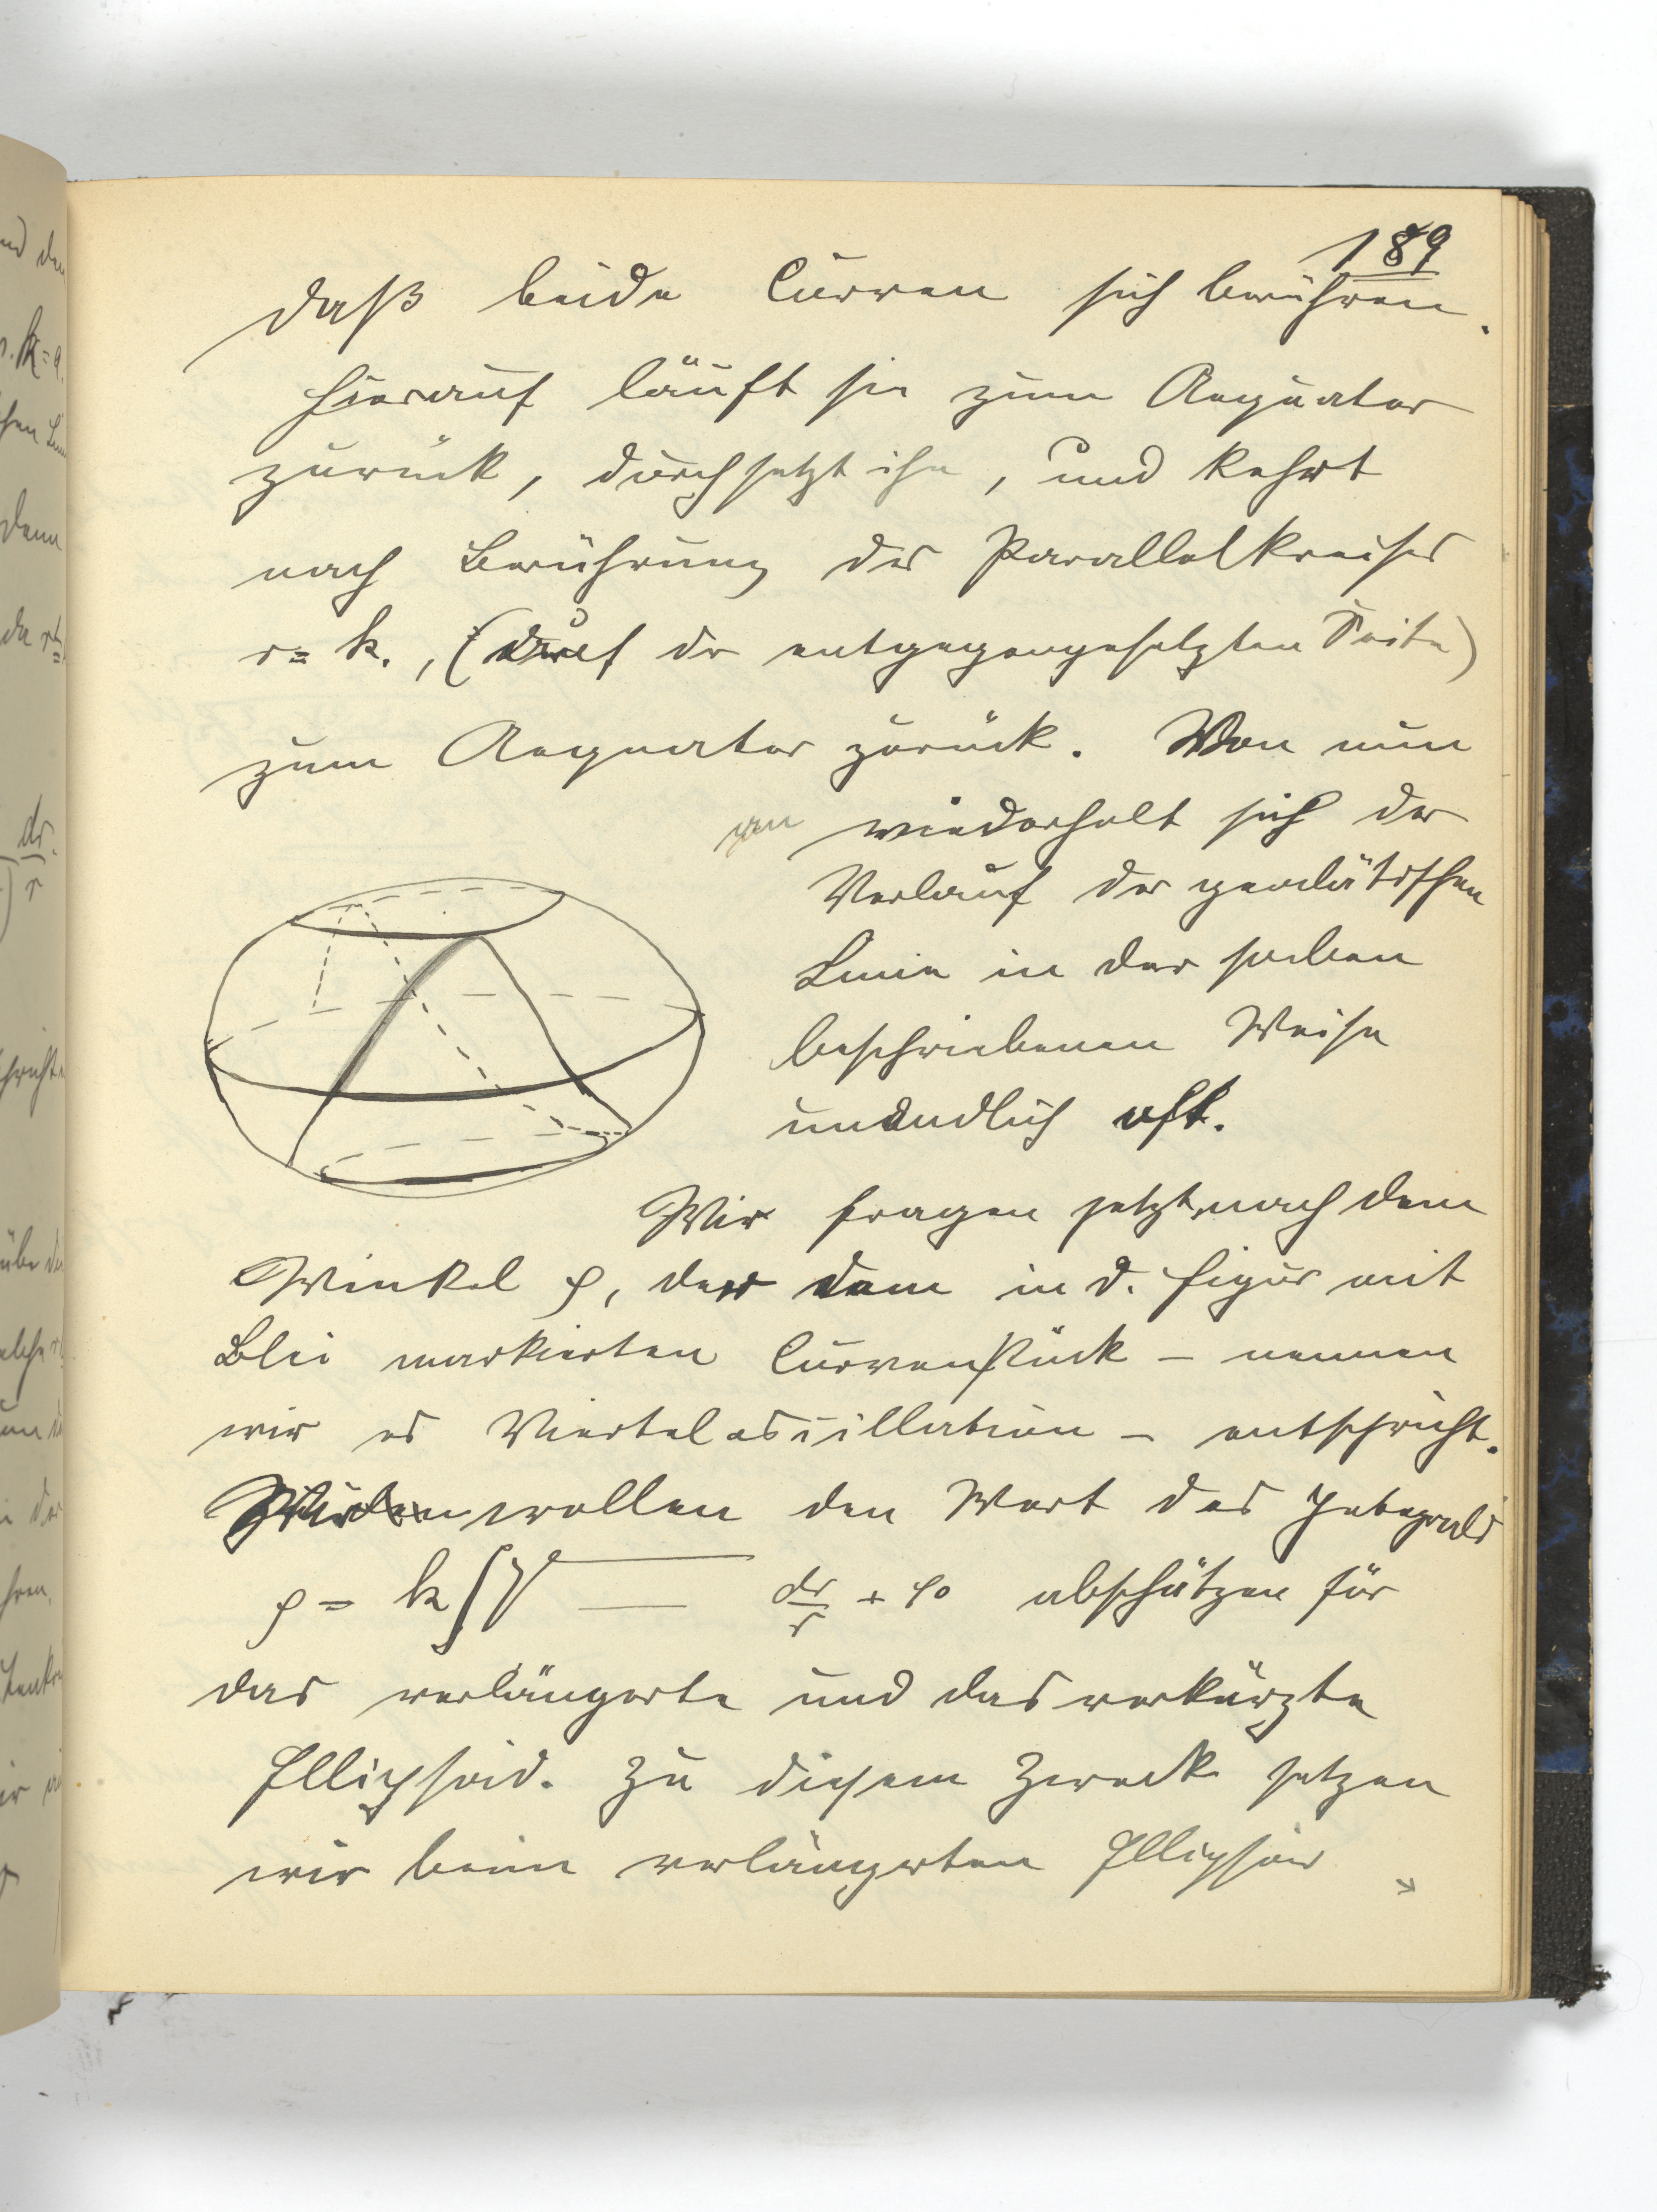 189
daß beide Curven sich berühren.
Hierauf läuft sie zum Aequator
zurück, durchsetzt ihn, und kehrt
nach Berührung des Parallelkreises
r = k., (auf der entgegengesetzten Seite)
zum Aequator zurück. Von nun
an wiederholt sich der
Verlauf der geodätischen
Linie in der soeben
beschriebenen Weise
unendlich oft.
Wir fragen jetzt nach dem
Winkel φ, der dem in d. Figur mit
Blei markierten Curvenstück – nennen
wir es Vierteloscillation – entspricht.
Wir wollen den Wert des Integrals
φ = k ∫ √ dr/r + φ0 abschätzen für
das verlängerte und das verkürzte
Ellipsoid. Zu diesem Zweck setzen
wir beim verlängerten Ellipsoid